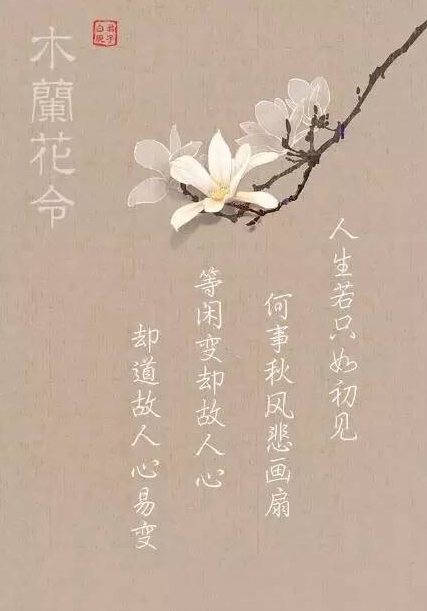 木蘭花令
人生若只如初见
何事秋风悲画扇
等闲变却故人心
却道故人心易变